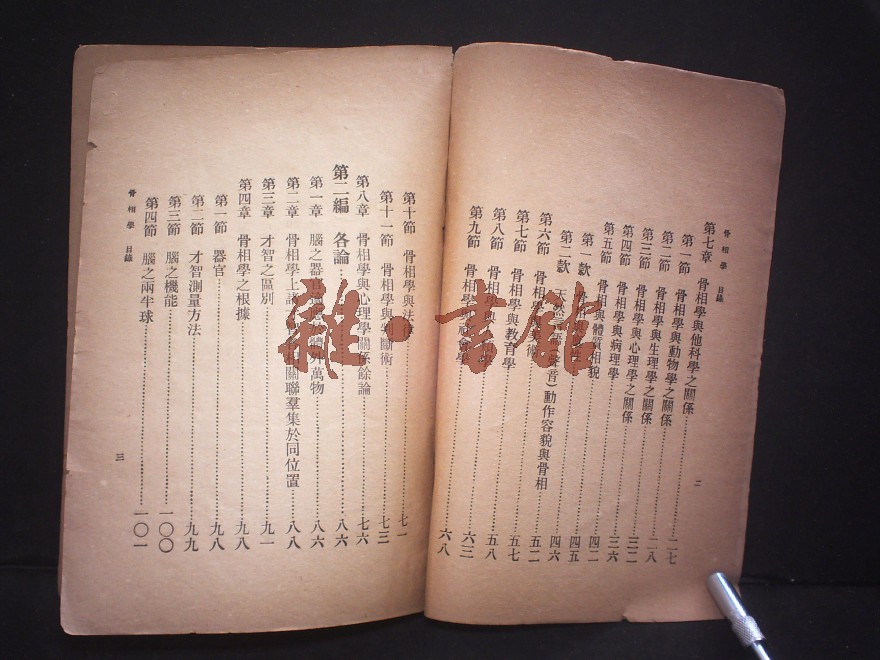 骨相學 目錄
第七章 骨相學與他科學之關係
第一節 骨相學與動物學之關係……二七
第二節 骨相學與生理學之關係……二八
第三節 骨相學與心理學之關係……三二
第四節 骨相學與病理學……三六
第五節 骨相與體質相貌……四二
第一款……四五
第二款 天然言語(聲音)動作容貌與骨相……四六
第六節 骨相學與美術……五二
第七節 骨相學與教育學……五七
第八節 骨相學與……五八
第九節 骨相學與社會學……六三
六八
二
第十節 骨相學與法律……七一
第十一節 骨相學與判斷術……七三
第八章 骨相學與心理學關係餘論……七六
第二編 各論……八六
第一章 腦之器官適應於體外萬物……八六
第二章 骨相學上諸……相關聯羣集於同位置……八八
第三章 才智之區別……九一
第四章 骨相學之根據……九八
第一節 器官……九八
第二節 才智測量方法……九九
第三節 腦之機能……一〇〇
第四節 腦之兩半球……一〇一
骨相學 目錄
三
雜·書館